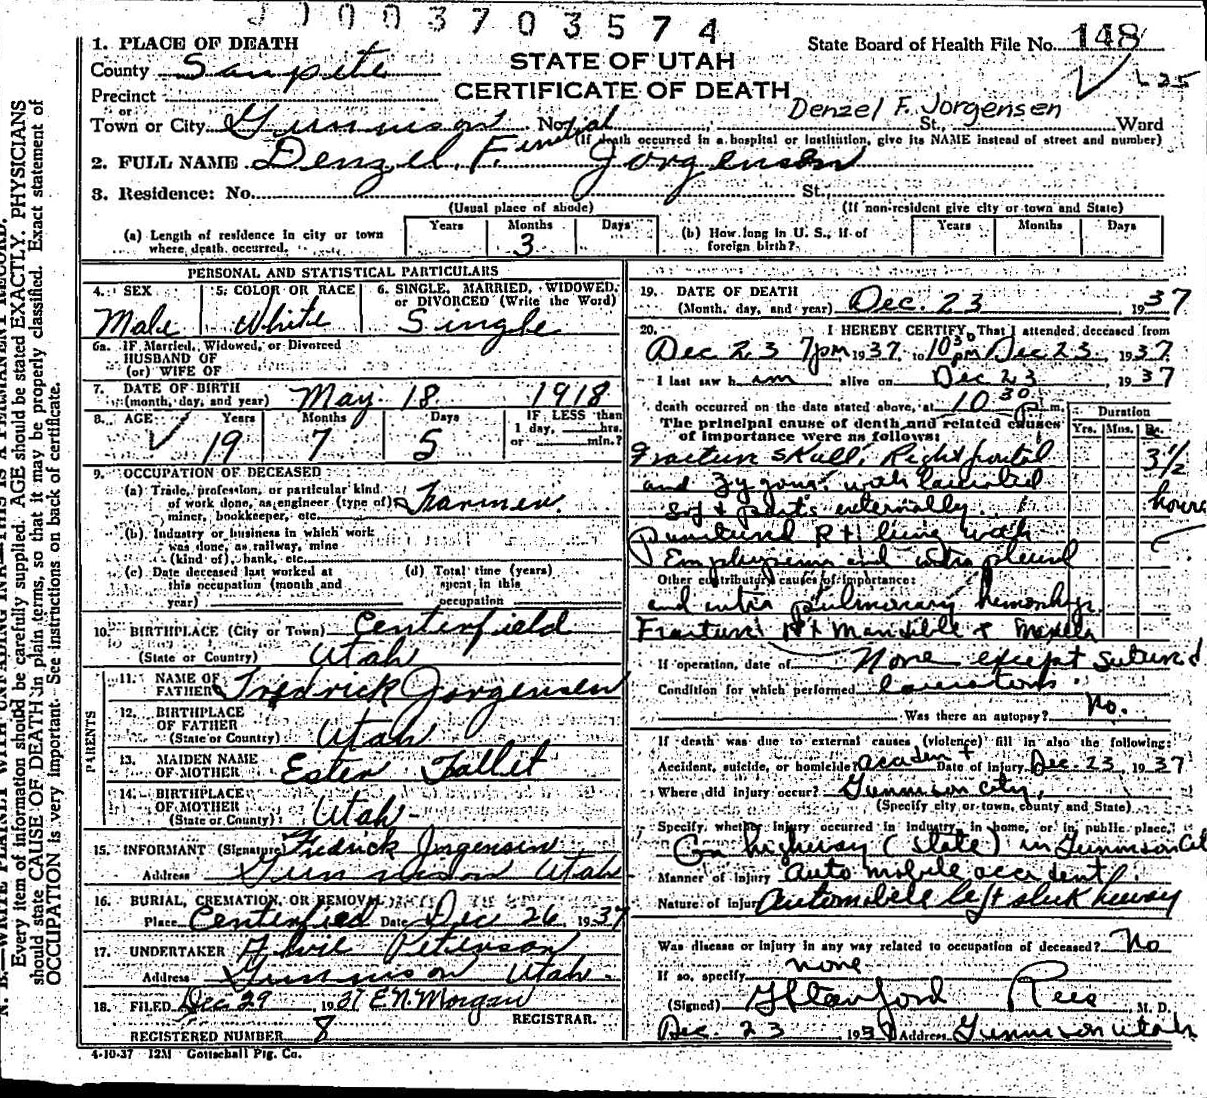 J 0 0 3 7 0 3 5 7 4
1. PLACE OF DEATH
County Sanpete
Precinct
or
Town or City Gunnison No.
STATE OF UTAH
CERTIFICATE OF DEATH
State Board of Health File No. 148
Denzel F. Jorgensen
St., Ward
(If death occurred in a hospital or institution, give its NAME instead of street and number)
2. FULL NAME Denzel F. Jorgensen
3. Residence: No. St.
(Usual place of abode) (If non-resident give city or town and State)
(a) Length of residence in city or town where death occurred. Years Months 3 Days
(b) How long in U. S., if of foreign birth? Years Months Days
PERSONAL AND STATISTICAL PARTICULARS
4. SEX Male
5. COLOR OR RACE White
6. SINGLE, MARRIED, WIDOWED, or DIVORCED (Write the Word) Single
6a. IF Married, Widowed, or Divorced
HUSBAND OF
(or) WIFE OF
7. DATE OF BIRTH
(month, day, and year) May 18 1918
8. AGE Years 19 Months 7 Days 5 IF LESS than 1 day, hrs. or min.?
9. OCCUPATION OF DECEASED
(a) Trade, profession, or particular kind
of work done, as engineer (type of) Farmer
miner, bookkeeper, etc.
(b) Industry or business in which work
was done, as railway, mine
(kind of), bank, etc.
(c) Date deceased last worked at this occupation (month and year)
(d) Total time (years) spent in this occupation
10. BIRTHPLACE (City or Town) Centerfield
(State or Country) Utah
PARENTS
11. NAME OF FATHER Fredrick Jorgensen
12. BIRTHPLACE OF FATHER (State or Country) Utah
13. MAIDEN NAME OF MOTHER Ester
14. BIRTHPLACE OF MOTHER (State or Country) Utah
15. INFORMANT (Signature) Fredrick Jorgensen
Address Gunnison Utah
16. BURIAL, CREMATION, OR REMOVAL
Place Centerfield Date Dec 26 1937
17. UNDERTAKER Peterson
Address Gunnison Utah.
18. FILED Dec 29 1937 E.N. Morgan
REGISTRAR.
REGISTERED NUMBER 8
4-10-37 12M Gottschall Ptg. Co.
19. DATE OF DEATH
(Month, day, and year) Dec. 23 1937
20. I HEREBY CERTIFY, That I attended deceased from
Dec 23 7pm 1937 to 10 30 pm Dec 23, 1937
I last saw him alive on Dec 23 1937
death occurred on the date stated above, at 10 30 p.m.
The principal cause of death and related causes
of importance were as follows:
Duration
Yrs. Mos. Ds.
Fracture Skull, Right frontal
3 1/2 hours
and Zygoma with lacerated
soft parts externally.
punctured Rt lung with
Emphysema and intra pleural
Other contributory causes of importance:
and intra pulmonary hemorrhage
Fracture Rt Mandible & Maxilla
If operation, date of None except sutured
Condition for which performed lacerations.
Was there an autopsy? No.
If death was due to external causes (violence) fill in also the following:
Accident, suicide, or homicide accident Date of injury Dec. 23, 1937
Where did injury occur? Gunnison City,
(Specify city or town, county and State)
Specify, whether injury occurred in industry, in home, or in public place,
On highway (State) in Gunnison City
Manner of injury Automobile accident
Nature of injury Automobile left
Was disease or injury in any way related to occupation of deceased? No
If so, specify none
(Signed) G Stanford Rees, M. D.
Dec. 23 193 Address Gunnison Utah
N. B.—WRITE PLAINLY WITH UNFADING INK—THIS IS A PERMANENT RECORD.
Every item of information should be carefully supplied. AGE should be stated EXACTLY. PHYSICIANS
should state CAUSE OF DEATH in plain terms, so that it may be properly classified. Exact statement of
OCCUPATION is very important. See instructions on back of certificate.